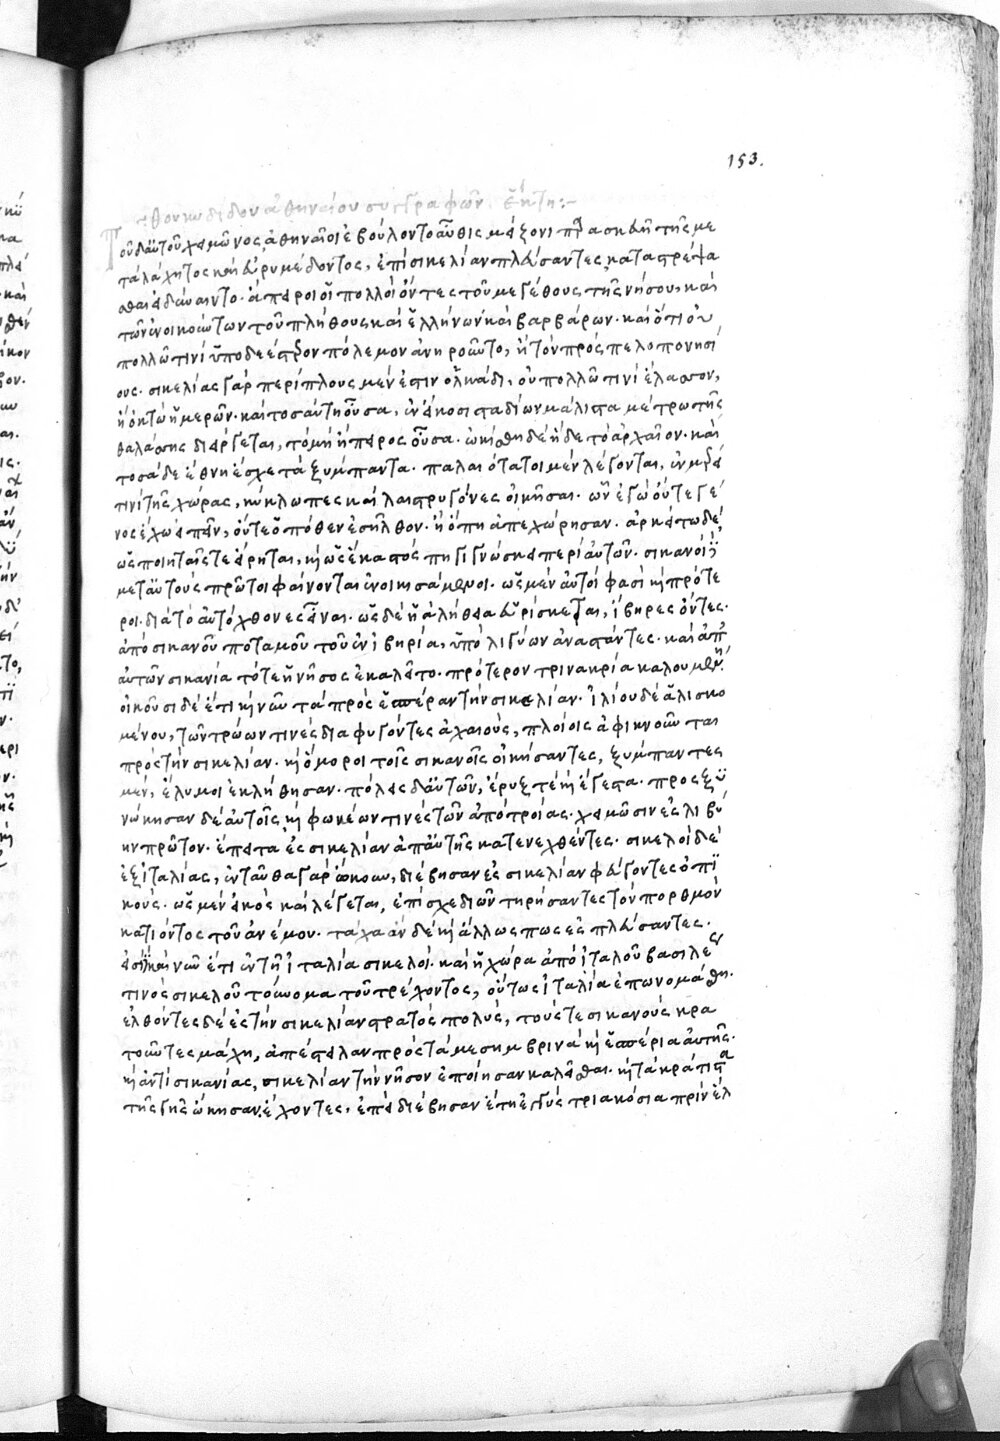 153.
θουκυδίδου ἀθηναίου συγγραφῶν ἕκτη:-
Τοῦ δ' αὐτοῦ χειμῶνος, ἀθηναῖοι ἐβούλοντο αὖθις μείζονι παρασκευῇ τῆς με
τὰ λάχητος καὶ εὐρυμέδοντος, ἐπὶ σικελίαν πλεύσαντες καταστρέψα
σθαι εἰ δύναιντο· ἄπειροι οἱ πολλοὶ ὄντες τοῦ μεγέθους τῆς νήσου, καὶ
τῶν ἐνοικούντων τοῦ πλήθους καὶ ἑλλήνων καὶ βαρβάρων· καὶ ὅτι οὐ
πολλῶ τινὶ ὑποδεέστερον πόλεμον ἀνηροῦντο, ἢ τὸν πρὸς πελοπονησί
ους· σικελίας γὰρ περίπλους μέν ἐστιν ὁλκάδι, οὐ πολλῶ τινὶ ἔλασσον,
ἢ ὀκτὼ ἡμερῶν· καὶ τοσαύτη οὖσα, ἐν εἴκοσι σταδίων μάλιστα μέτρω τῆς
θαλάσσης διείργεται, τὸ μὴ ἤπειρος οὖσα· ὠκίσθη δὲ ἧδε τὸ ἀρχαῖον· καὶ
τοσάδε ἔθνη ἔσχε τὰ ξύμπαντα· παλαιότατοι μὲν λέγονται, ἐν μέρει
τινὶ τῆς χώρας, κύκλωπες καὶ λαιστρυγόνες οἰκῆσαι· ὧν ἐγὼ οὔτε γέ
νος ἔχω εἰπεῖν, οὔτε ὁπόθεν ἐσῆλθον· ἢ ὅπη ἀπεχώρησαν· ἀρκείτω δέ,
ὡς ποιηταῖς τε εἴρηται, καὶ ὡς ἕκαστός πη γιγνώσκει περὶ αὐτῶν· σικανοὶ
μετ' αὐτοὺς πρῶτοι φαίνονται ἐνοικησάμενοι· ὡς μὲν αὐτοί φασὶ καὶ πρότε
ροι διὰ τὸ αὐτόχθονες εἶναι· ὡς δὲ ἡ ἀλήθεια εὑρίσκεται, ἴβηρες ὄντες·
ἀπὸ σικανοῦ ποταμοῦ τοῦ ἐν ἰβηρία, ὑπὸ λιγύων ἀναστάντες· καὶ ἀπ'
αὐτῶν σικανία τότε ἡ νῆσος ἐκαλεῖτο· πρότερον τρινακρία καλουμένη·
οἰκοῦσι δὲ ἔτι καὶ νῦν τὰ πρὸς ἑσπέραν τὴν σικελίαν· ἰλίου δὲ ἁλισκο
μένου, τῶν τρώων τινὲς διαφυγόντες ἀχαιούς, πλοίοις ἀφικνοῦνται
πρὸς τὴν σικελίαν· καὶ ὅμοροι τοῖς σικανοῖς οἰκήσαντες, ξύμπαντες
μέν, ἔλυμοι ἐκλήθησαν· πόλεις δ' αὐτῶν, ἔρυξ τὲ καὶ ἔγεστα· προσξυ
νώκησαν δὲ αὐτοῖς καὶ φωκέων τινὲς τῶν ἀπὸ τροίας· χειμῶσιν ἐς λιβύ
ην πρῶτον· ἔπειτα ἐς σικελίαν ἀπ' αὐτῆς κατενεχθέντες· σικελοὶ δὲ
ἐξ ἰταλίας, ἐνταῦθα γὰρ ᾤκουν, διέβησαν ἐς σικελίαν φεύγοντες ὀπι
κούς· ὡς μὲν εἰκὸς καὶ λέγεται, ἐπὶ σχεδιῶν τηρήσαντες τὸν πορθμὸν
κατιόντος τοῦ ἀνέμου· τάχα ἂν δὲ καὶ ἄλλως πως ἐσπλεύσαντες·
εἰσὶ καὶ νῦν ἔτι ἐν τῆ ἰταλία σικελοί· καὶ ἡ χώρα ἀπὸ ἰταλοῦ βασιλέως
τινὸς σικελοῦ τοὔνομα τοῦτ' ἔχοντος, οὕτως ἰταλία ἐπωνομάσθη·
ἐλθόντες δὲ ἐς τὴν σικελίαν στρατὸς πολύς, τούς τε σικανοὺς κρα
τοῦντες μάχη, ἀπέστειλαν πρὸς τὰ μεσημβρινὰ καὶ ἑσπέρια αὐτῆς·
καὶ ἀντὶ σικανίας, σικελίαν τὴν νῆσον ἐποίησαν καλεῖσθαι· καὶ τὰ κράτιστα
τῆς γῆς ὤκησαν ἔχοντες, ἐπεὶ διέβησαν ἔτη ἐγγὺς τριακόσια πρὶν ἕλ